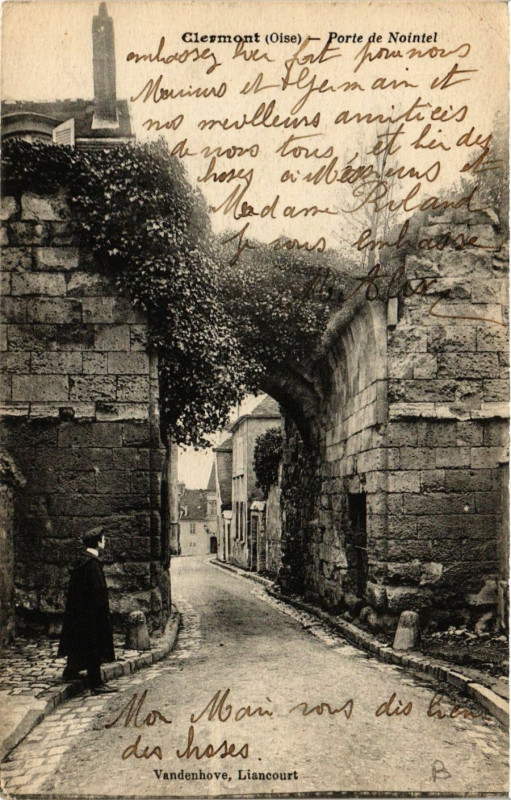 Clermont (Oise) — Porte de Nointel
embassez bien fort pour nous
et Germain et
nos meilleurs amitiés
a nous tous et bien des
choses à Messieurs et
Madame
Je vous embasse
Mon Mari vous dis bien
des choses.
Vandenhove, Liancourt
B